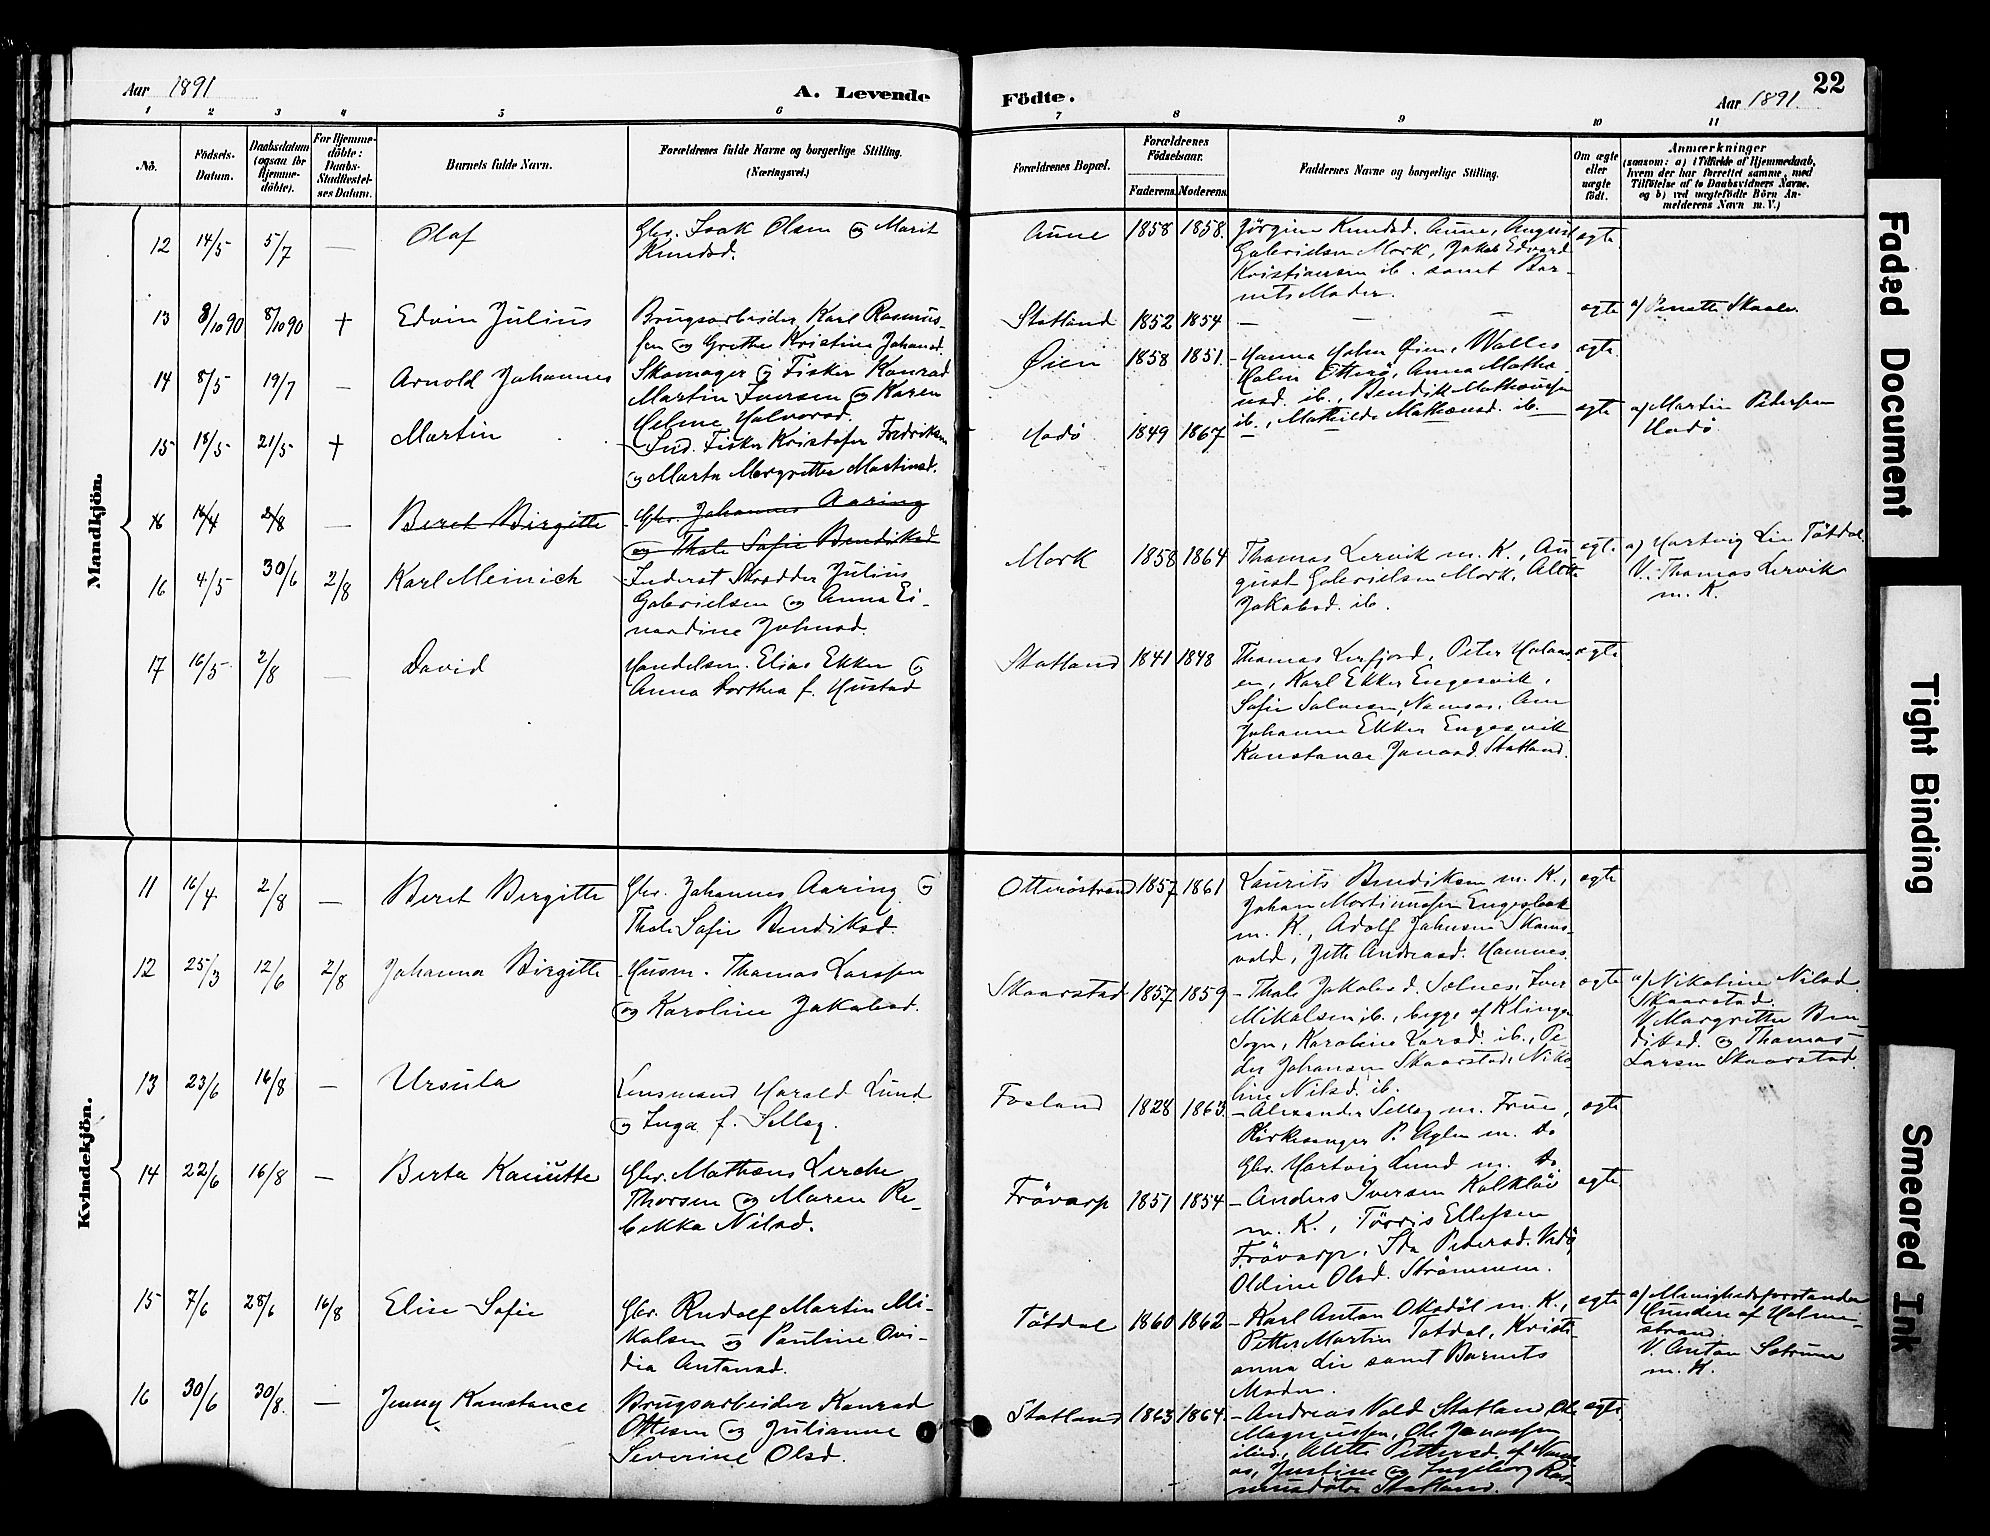 Aar 1891
A. Levende
Födte.
Aar 1891.
22
1 2 3 4 5 6 7 8 9 10 11
No.
Födsels-
Datum.
Daabsdatum
(ogsaa for
Hjemme-
döbte).
For Hjemme-
döbte:
Daabs-
Stadfæstel-
ses Datum.
Barnets fulde Navn.
Forældrenes fulde Navne og borgerlige Stilling.
(Næringsvei.)
Forældrenes Bopæl.
Forældrenes
Födselsaar.
Faderens. Moderens.
Faddernes Navne og borgerlige Stilling.
Om ægte
eller
uægte
födt.
Anmærkninger
(saasom: a) i Tilfælde af Hjemmedaab,
hvem der har forrettet samme, med
Tilföielse af to Daabsvidners Navne,
og b) ved uægtefödte Börn An-
melderens Navn m. V.)
Mandkjön.
12 14/5 5/7 — Olaf
Gbr. Isak Olsen og Marit
Knudsd.
Aune 1858 1858.
Jörgine Knudsd. Aune, August
Gabrielsen Mork, Jakob Edvard
Kristiansen ib. samt Bar-
nets Moder.
ægte
13 8/10 90 8/10 90 † Edvin Julius
Brugsarbeider Karl Rasmus-
sen og Grethe Kristine Johansd.
Statland 1852 1854 — — —
ægte a/ Penette Skaalv.
14 8/5 19/7 — Arnold Johannes
Skomager og Fisker Konrad
Martin Iversen og Karen
Helene Halvorsd.
Øien 1858 1851.
Hanna Holm Øien,
Holm Otterö, Anna Mathe-
usd. ib., Bendik Matheussen
ib., Mathilde Matheusd. ib.
ægte
15 18/5 21/5 † Martin
Ind. Fisker Kristofer Fredriksen
og Marta Margrethe Martinsd.
Hodö 1849 1867 —
ægte a/ Martin Pedersen
Hodö
16 16/4 2/8 — Beret Birgitte
Gbr. Johannes Aaring
og Thale Sofie Bendiksd.
16 4/5 30/6 2/8 Karl Meinich
Inderst Skrædder Julius
Gabrielsen og Anna Ei-
nardine Johnsd.
Mork 1858 1864
Thomas Lervik m. K., Au-
gust Gabrielsen Mork, Alette
Jakobsd. ib.
ægte a) Hartvig Lie Tötdal
V. Thomas Lervik
m. K.
17 16/5 2/8 — David
Handelsm. Elias Ekker og
Anna Dorthea f. Hustad
Statland 1841 1848
Thomas Lerfjord, Peter
en, Karl Ekker Engesvik,
Sofie Salvesen, Namsos,
Johanna Ekker Engesvik
Konstance Jonasd. Statland.
ægte
Kvindekjön.
11 16/4 2/8 — Beret Birgitte
Gbr. Johannes Aaring og
Thale Sofie Bendiksd.
Otteröstrand 1857 1861
Laurits Bendiksen m. K.,
Johan Mortinussen
m. K., Adolf Johnsen
Jette Andreasd. Hamnes.
ægte
12 25/3 12/6 2/8 Johanna Birgitte
Husm. Thomas Larssen
og Karoline Jakobsd.
Skaarstad 1857 1859
Thale Jakobsd. Solnes, Iver
Mikalsen ib., begge af Klinge
Sogn, Karoline Larsd. ib., Pe-
der Johansen Skaarstad, Niko-
line Nilsd. ib.
ægte a/ Nikoline Nilsd.
Skaarstad.
V. Margrethe Ben-
diksd. og Thomas
Larsen Skaarstad.
13 23/6 16/8 — Ursula
Lensmand Harald Lund
og Inga f. Selleg.
Fosland 1828 1863.
Alexander Selleg m. Frue,
Kirkesanger P. Aglen m. do
Gbr. Hartvig Lund m. do
ægte
14 22/6 16/8 — Berta Kanutte
Gbr. Matheus Lerche
Thorsen og Maren Re-
bekka Nilsd.
Frövarp 1851 1854
Anders Iversen Kalklöv
m. K., Törris Ellefsen
Frövarp, Ida Pedersd.
Oldine Olsd. Strömmen.
ægte
15 7/6 28/6 16/8 Elise Sofie
Gbr. Rudolf Martin Mi-
kalsen og Pauline Ovi-
dia Antonsd.
Tötdal 1860 1862
Karl Anton m. K.,
Petter Martin Totdal, Kristi-
anna Lie samt Barnets
Moder.
ægte a/ Menighedsforstander
Gundere af Holme-
strand.
V. Anton
m. K.
16 30/6 30/8. — Jenny Konstance
Brugsarbeider Konrad
Ottesen og Julianne
Severine Olsd.
Statland 1863 1864.
Andreas Vold Statland, Ole
Magnussen, Ole Jonassen
ibid., Alette Pettersd. af Nams-
os, Justine og Ingeborg Ras-
musdötre Statland.
ægte
Faded Document
Tight Binding
Smeared Ink